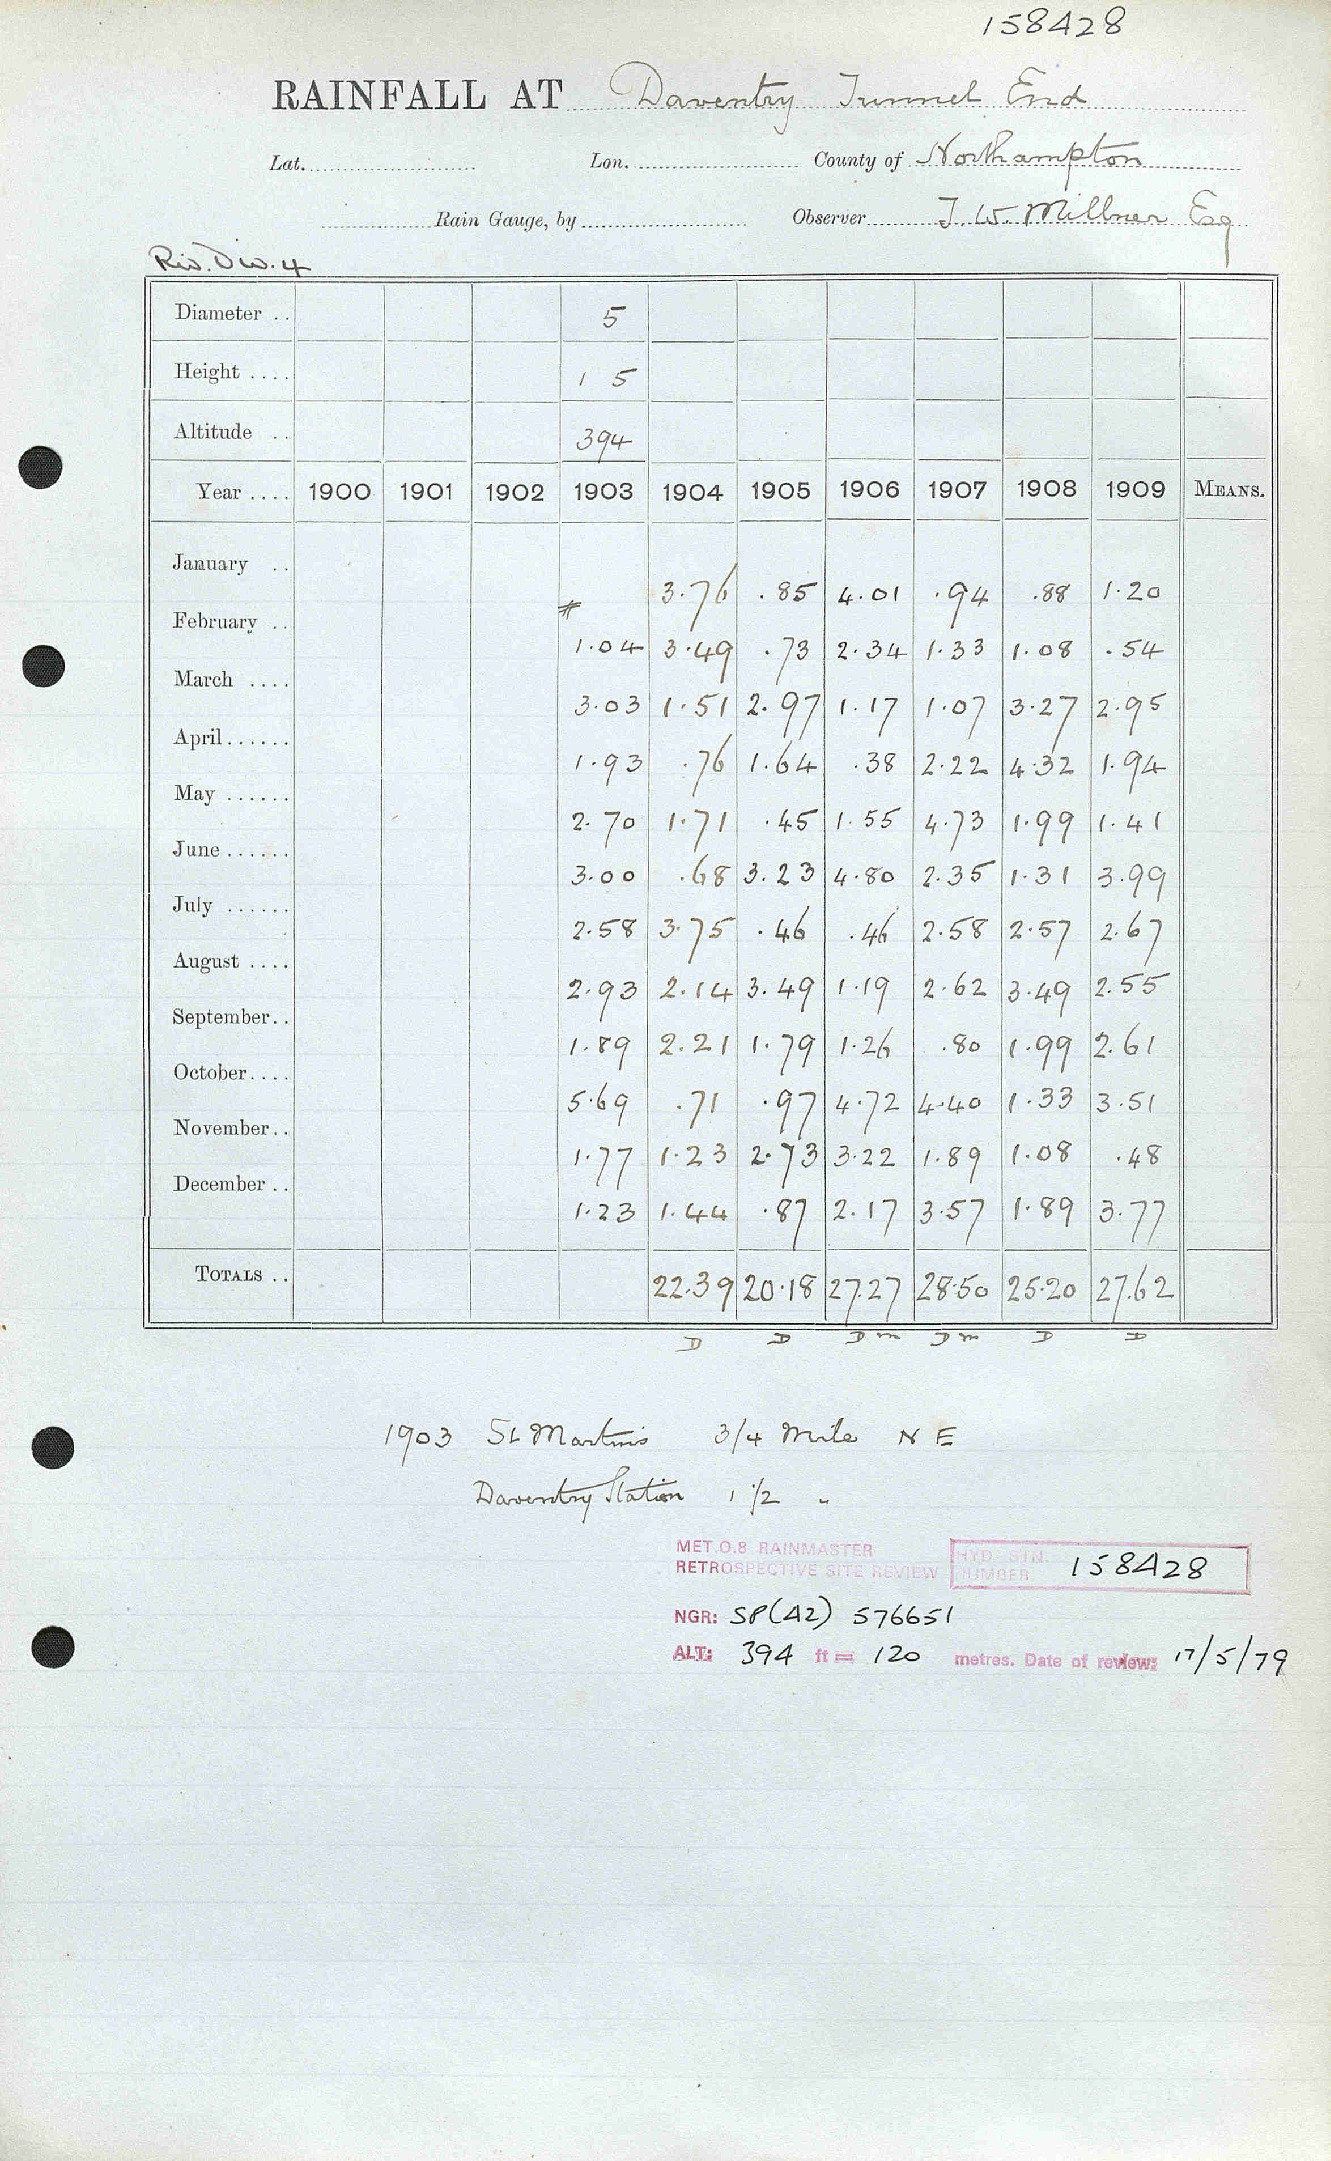 158428
RAINFALL AT Daventry Tunnel End
Lat. Lon. County of Northampton
Rain Gauge, by Observer J. W. Millner Esq
Riv. D W. 4
Diameter .. 5
Height .... 1 5
Altitude .. 394
Year .... 1900 1901 1902 1903 1904 1905 1906 1907 1908 1909 MEANS.
January .. # 3.76 .85 4.01 .94 .88 1.20
February .. 1.04 3.49 .73 2.34 1.33 1.08 .54
March .... 3.03 1.51 2.97 1.17 1.07 3.27 2.95
April...... 1.93 .76 1.64 .38 2.22 4.32 1.94
May ...... 2.70 1.71 .45 1.55 4.73 1.99 1.41
June...... 3.00 .68 3.23 4.80 2.35 1.31 3.99
July ...... 2.58 3.75 .46 .46 2.58 2.57 2.67
August .... 2.93 2.14 3.49 1.19 2.62 3.49 2.55
September.. 1.89 2.21 1.79 1.26 .80 1.99 2.61
October.... 5.69 .71 .97 4.72 4.40 1.33 3.51
November.. 1.77 1.23 2.73 3.22 1.89 1.08 .48
December .. 1.23 1.44 .87 2.17 3.57 1.89 3.77
TOTALS .. 22.39 20.18 27.27 28.50 25.20 27.62
D D D m D m D D
1903 St Martins 3/4 Mile N E
Daventry Station 1 1/2 "
MET.O.8 RAINMASTER
RETROSPECTIVE SITE REVIEW HYD. STN. NUMBER 158428
NGR: SP(42) 576651
ALT: 394 ft = 120 metres. Date of review: 17/5/79